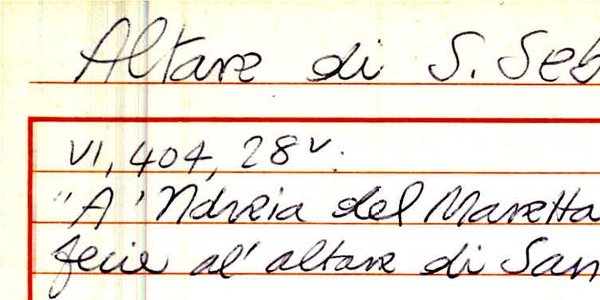 Altare di S. Seb
VI, 404, 28v.
"A 'Ndreia del Maretta
fecie al' altare di San